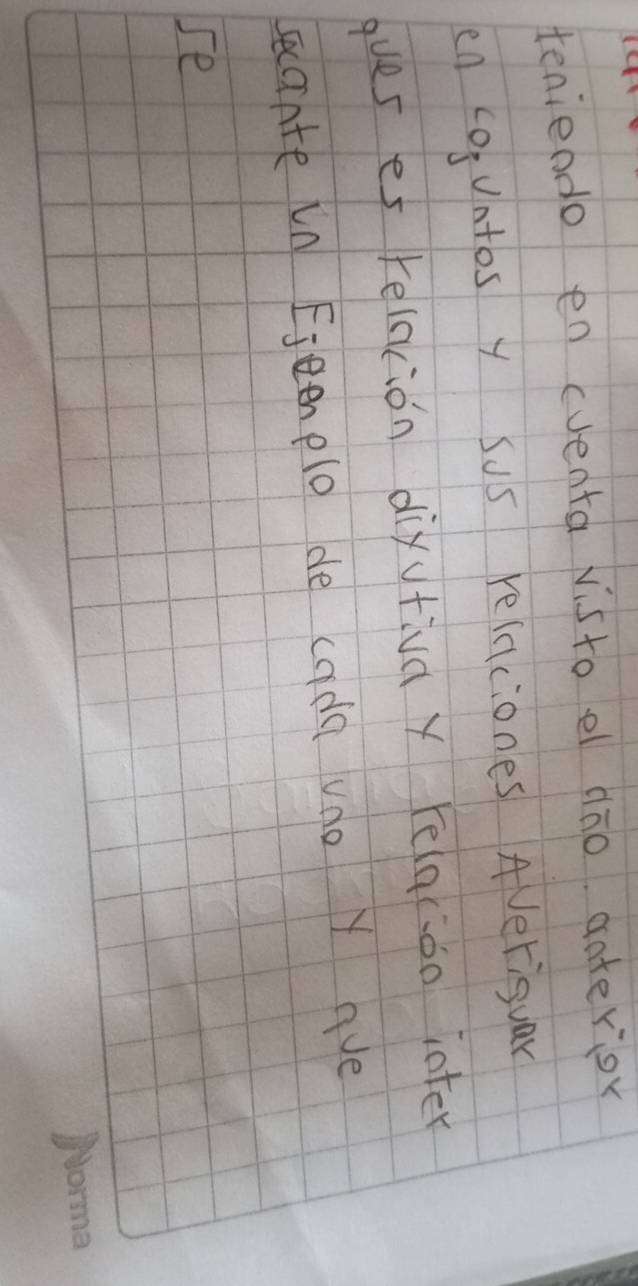 teniendo en cuenta visto el año anterior
en cojuntos y sus relaciones Averiguar
ques es relación dixutiva y relación inter
secante un Ejeemplo de cada uno y que
se
Norma